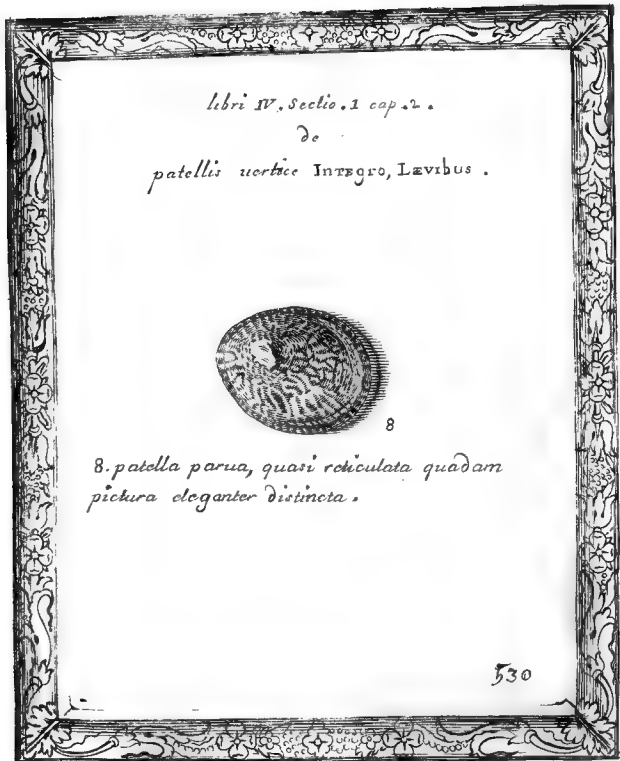 libri IV. Sectio. 1 cap. 2.
de
patellis uertice Integro, Lævibus.
8
8. patella parua, quasi reticulata quadam
pictura eleganter distincta.
530